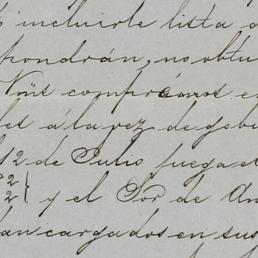 incluirle lista
pondrán, no obtu
Vms compramos e
a la vez de gsbu
12 de Julio juega el
2 } y el Sor de An
2
an cargados en sus